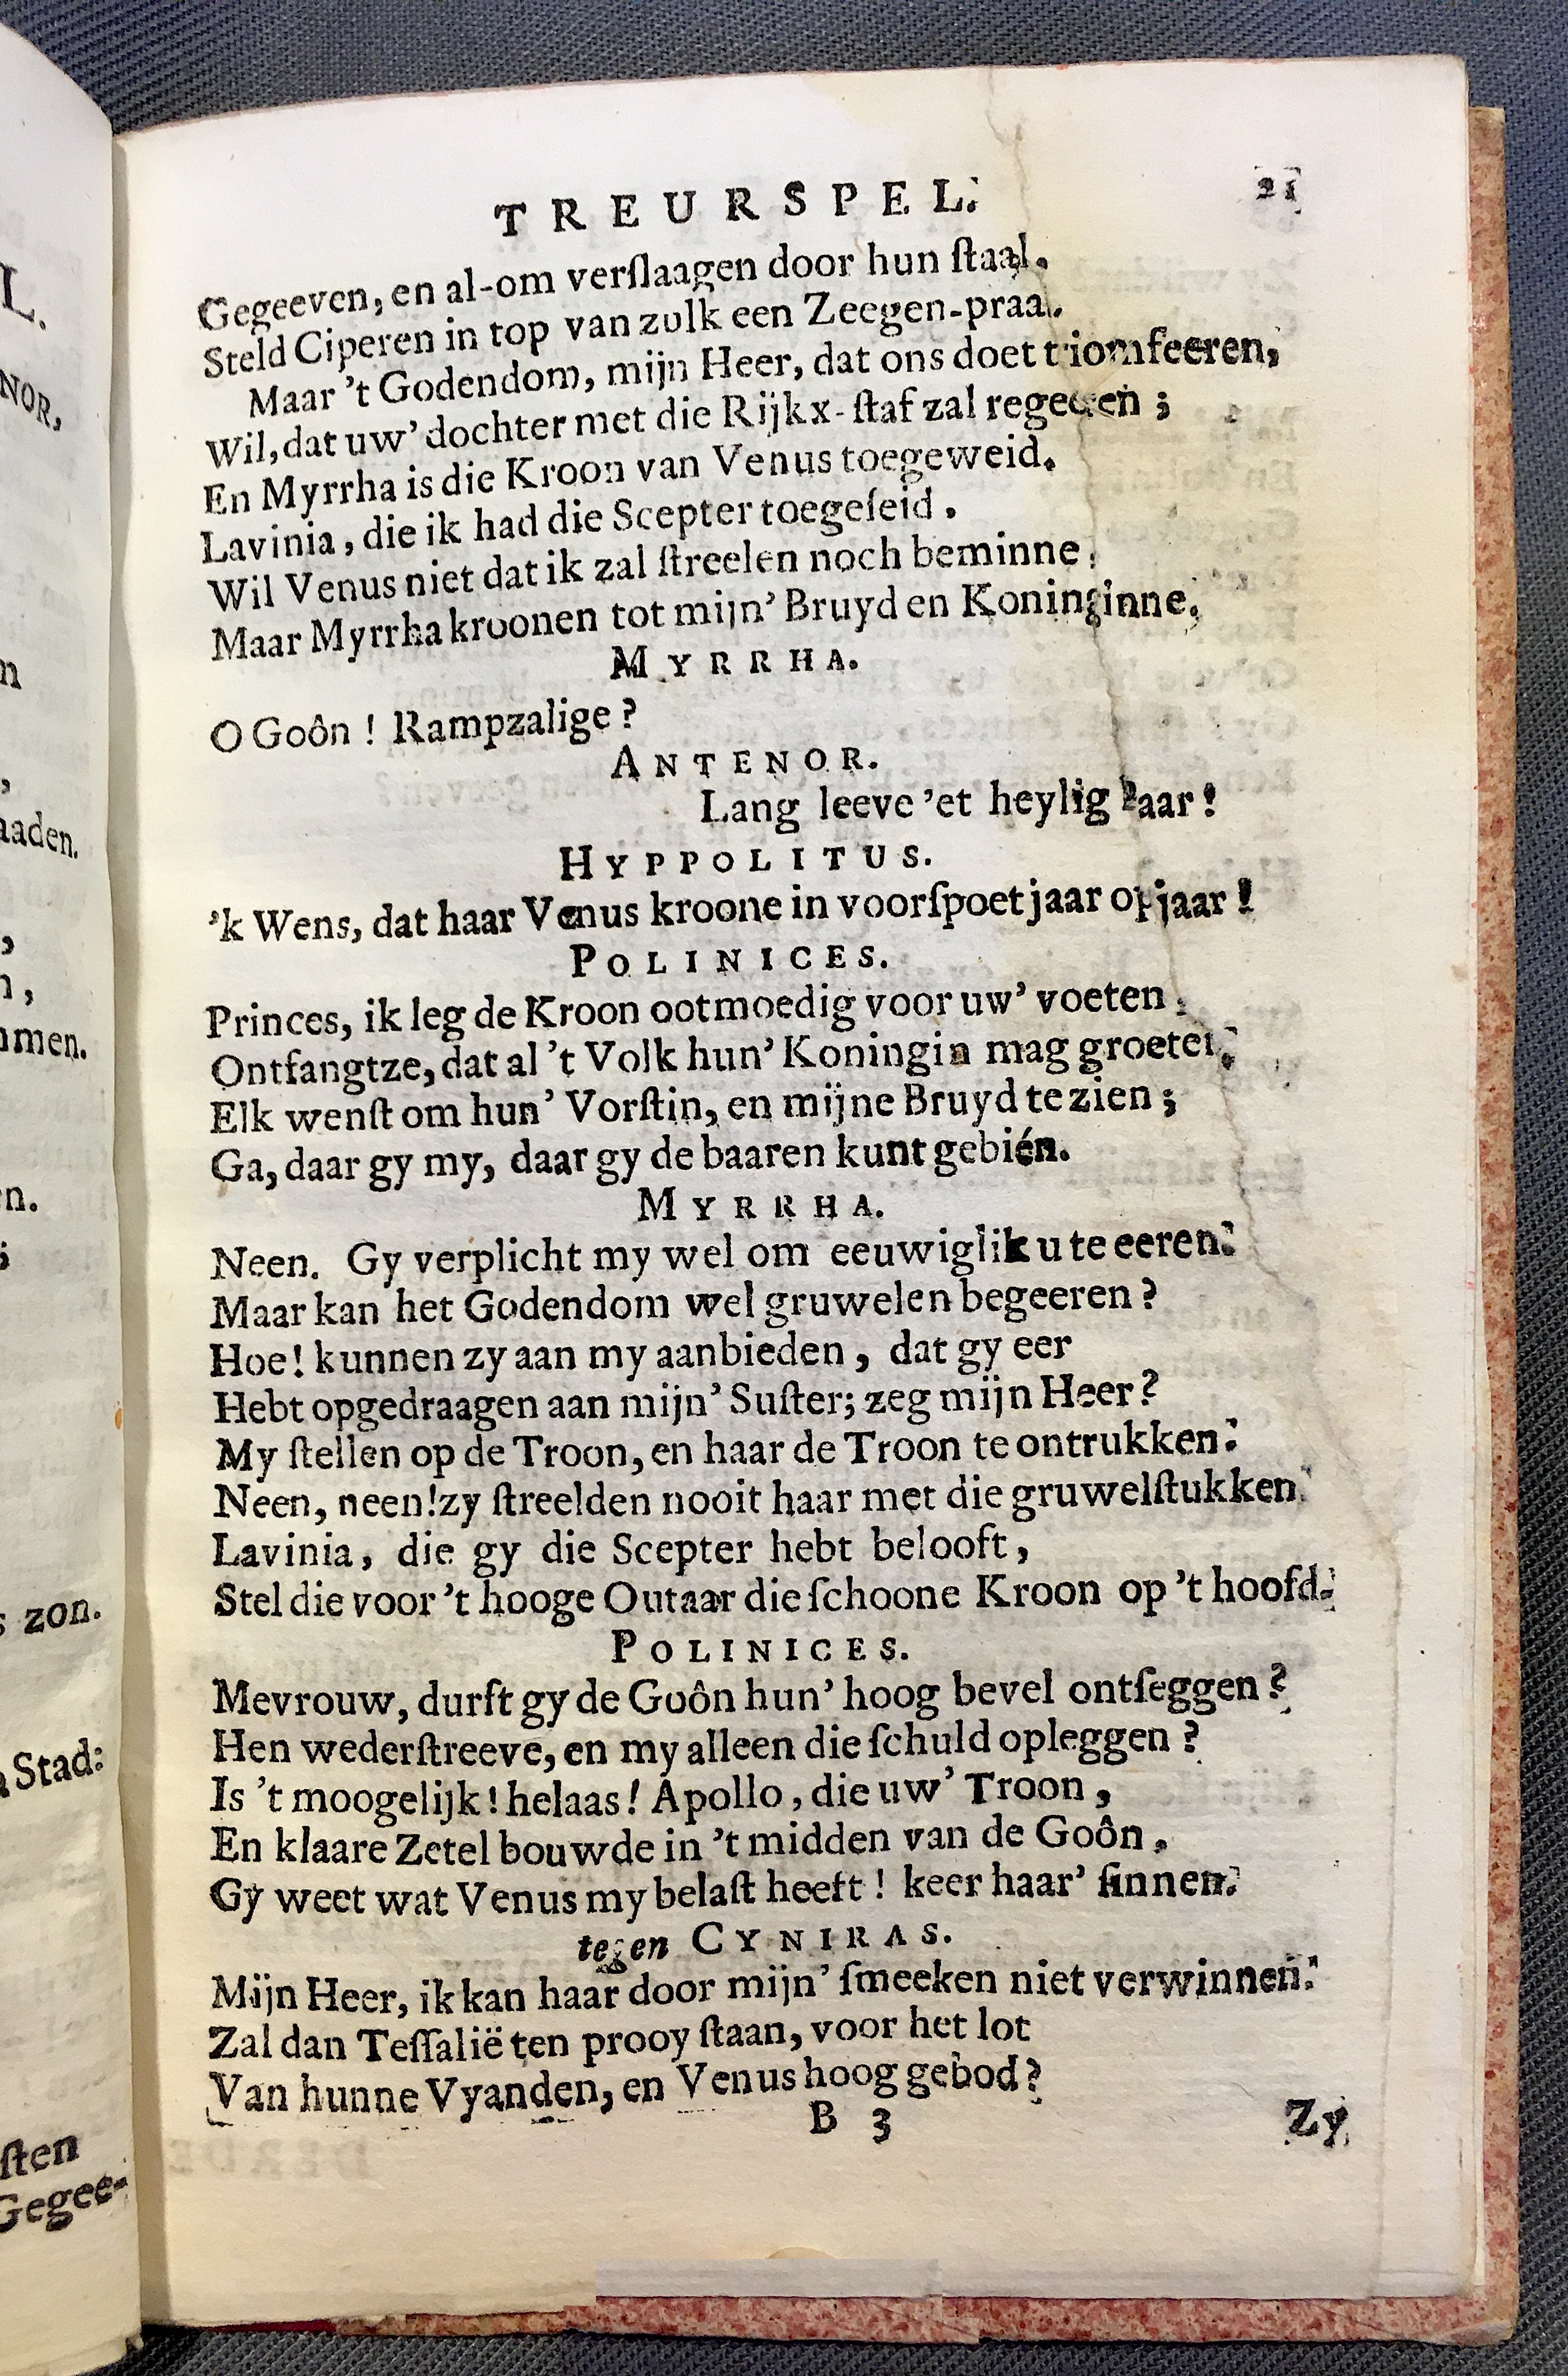 TREURSPEL. 21
Gegeeven, en al-om verſlaagen door hun ſtaal.
Steld Ciperen in top van zulk een Zeegen-praal.
Maar 't Godendom, mijn Heer, dat ons doet triomfeeren,
Wil, dat uw' dochter met die Rijkx-ſtaf zal regeeren;
En Myrrha is die Kroon van Venus toegeweid.
Lavinia, die ik had die Scepter toegeſeid.
Wil Venus niet dat ik zal ſtreelen noch beminne,
Maar Myrrha kroonen tot mijn' Bruyd en Koninginne.
MYRRHA.
O Goôn! Rampzalige?
ANTENOR.
Lang leeve 'et heylig Paar!
HYPPOLITUS.
'k Wens, dat haar Venus kroone in voorſpoet jaar op jaar!
POLINICES.
Princes, ik leg de Kroon ootmoedig voor uw' voeten,
Ontfangtze, dat al 't Volk hun' Koningin mag groeten.
Elk wenſt om hun' Vorſtin, en mijne Bruyd te zien;
Ga, daar gy my, daar gy de baaren kunt gebién.
MYRRHA.
Neen. Gy verplicht my wel om eeuwiglik u te eeren.
Maar kan het Godendom wel gruwelen begeeren?
Hoe! kunnen zy aan my aanbieden, dat gy eer
Hebt opgedraagen aan mijn' Suſter; zeg mijn Heer?
My ſtellen op de Troon, en haar de Troon te ontrukken.
Neen, neen! zy ſtreelden nooit haar met die gruwelſtukken.
Lavinia, die gy die Scepter hebt belooft,
Stel die voor 't hooge Outaar die ſchoone Kroon op 't hoofd.
POLINICES.
Mevrouw, durft gy de Goôn hun' hoog bevel ontſeggen?
Hen wederſtreeve, en my alleen die ſchuld opleggen?
Is 't moogelijk! helaas! Apollo, die uw' Troon,
En klaare Zetel bouwde in 't midden van de Goôn,
Gy weet wat Venus my belaſt heeft! keer haar' ſinnen.
tegen CYNIRAS.
Mijn Heer, ik kan haar door mijn' ſmeeken niet verwinnen.
Zal dan Teſſalië ten prooy ſtaan, voor het lot
Van hunne Vyanden, en Venus hoog gebod?
B 3 Zy
L.
NOR,
n
,
aaden.
,
n,
mmen.
en.
;
s zon.
Stad:
ſten
Gegee-